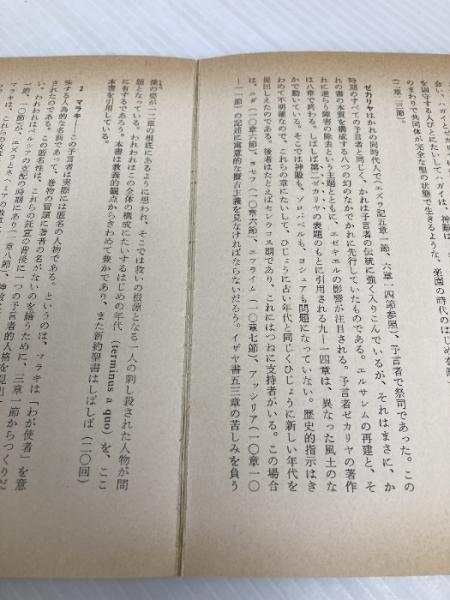 会い、ハガイとゼカ
を固守する人びとにたいして、ハガイは、神殿は、
のまわりで共同体が完全な聖の状態で生きるような、楽園の時代のはじめを画
(二章二三節)。
ゼカリヤはかれの同時代人で(エズラ記五章一節、六章一四節参照)、予言者で祭司であった。この
時期のすべての予言者と同じく、かれは予言者の伝統に強く入りこんでいるが、それはまさに、か
れの書の本質を構成する八つの幻のなかでかれに先行していたものである。エルサレムの再建と、そ
れに逆らう障害の除去という主題とともに、エゼキエルの影響が注目される。予言者ゼカリヤの著作
は八章で終わる。しばしば第二ゼカリヤの表題のもとに引用される九―一四章は、異なった風土のな
かで動いている。そこでは神殿も、ゾロバベルも、ヨシュアも問題になっていない。歴史的指示はき
わめて不明確なので、これらの章にたいして、ひじょうに古い年代と同じくひじょうに新しい年代を
提出しえたのである。後者はたとえばセレウコス期であり、これにはつねに支持者がいる。この場合
は、ユダ(一〇章六節)、ヨセフ(一〇章六節)、エフライム(一〇章七節)、アッシリア(一〇章一〇
―一一節)の記述に寓意的な擬古主義を見なければならないだろう。イザヤ書五三章の苦しみを負う
僕の姿が一二章の根底にあるように思われ、そこでは救いの根源となる一人の刺し殺された人物が問
題となっている。われわれはこの全体の構成にたいするはじめの年代(terminus a quo)を、ここ
に有するであろう。本書は教義的観点からきわめて豊かであり、また新約聖書はしばしば(二〇回)
本書を引用している。
2 マラキ―この予言者は実際には匿名の人物である。というのは、マラキは「わが使者」を意
味する人為的な名詞であって、巻物の冒頭に著者の名がないのを補うために、三章一節からつくりだ
されたのである。この匿名性は、これらの託宣の背後に一つの予言者的人格を見出
い。われわれはペルシアの支配の時期にあり(一章八節)、